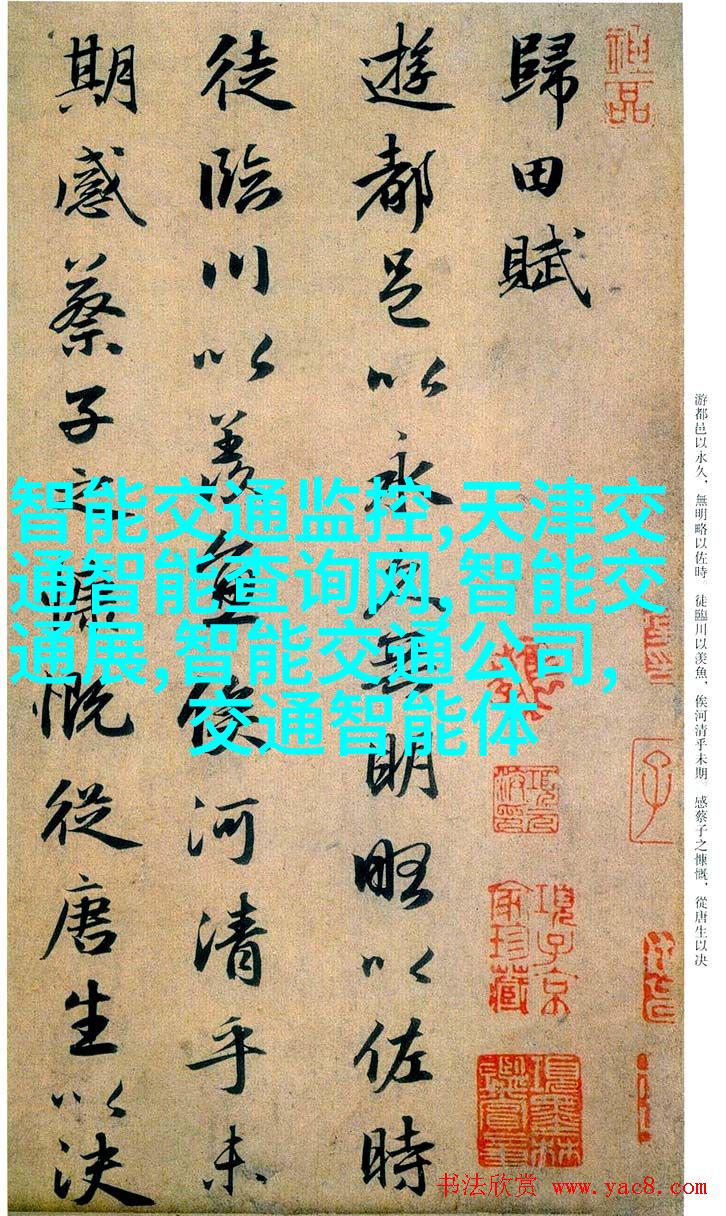 神品
歸田賦
遊都邑以永久無明略以佐時
徒臨川以羨魚俟河清乎未
期感蔡子之慷慨從唐生以決
智能交通监控,天津交
通智能查询网,智能交
通展,智能交通公司,
交通智能体
項子京
家珍藏
項墨林
鑑賞章
游都邑以永久，無明略以佐時　徒臨川以羨魚，俟河清乎未期。感蔡子之慷慨，從唐生以决
书法欣赏 www.yac8.com